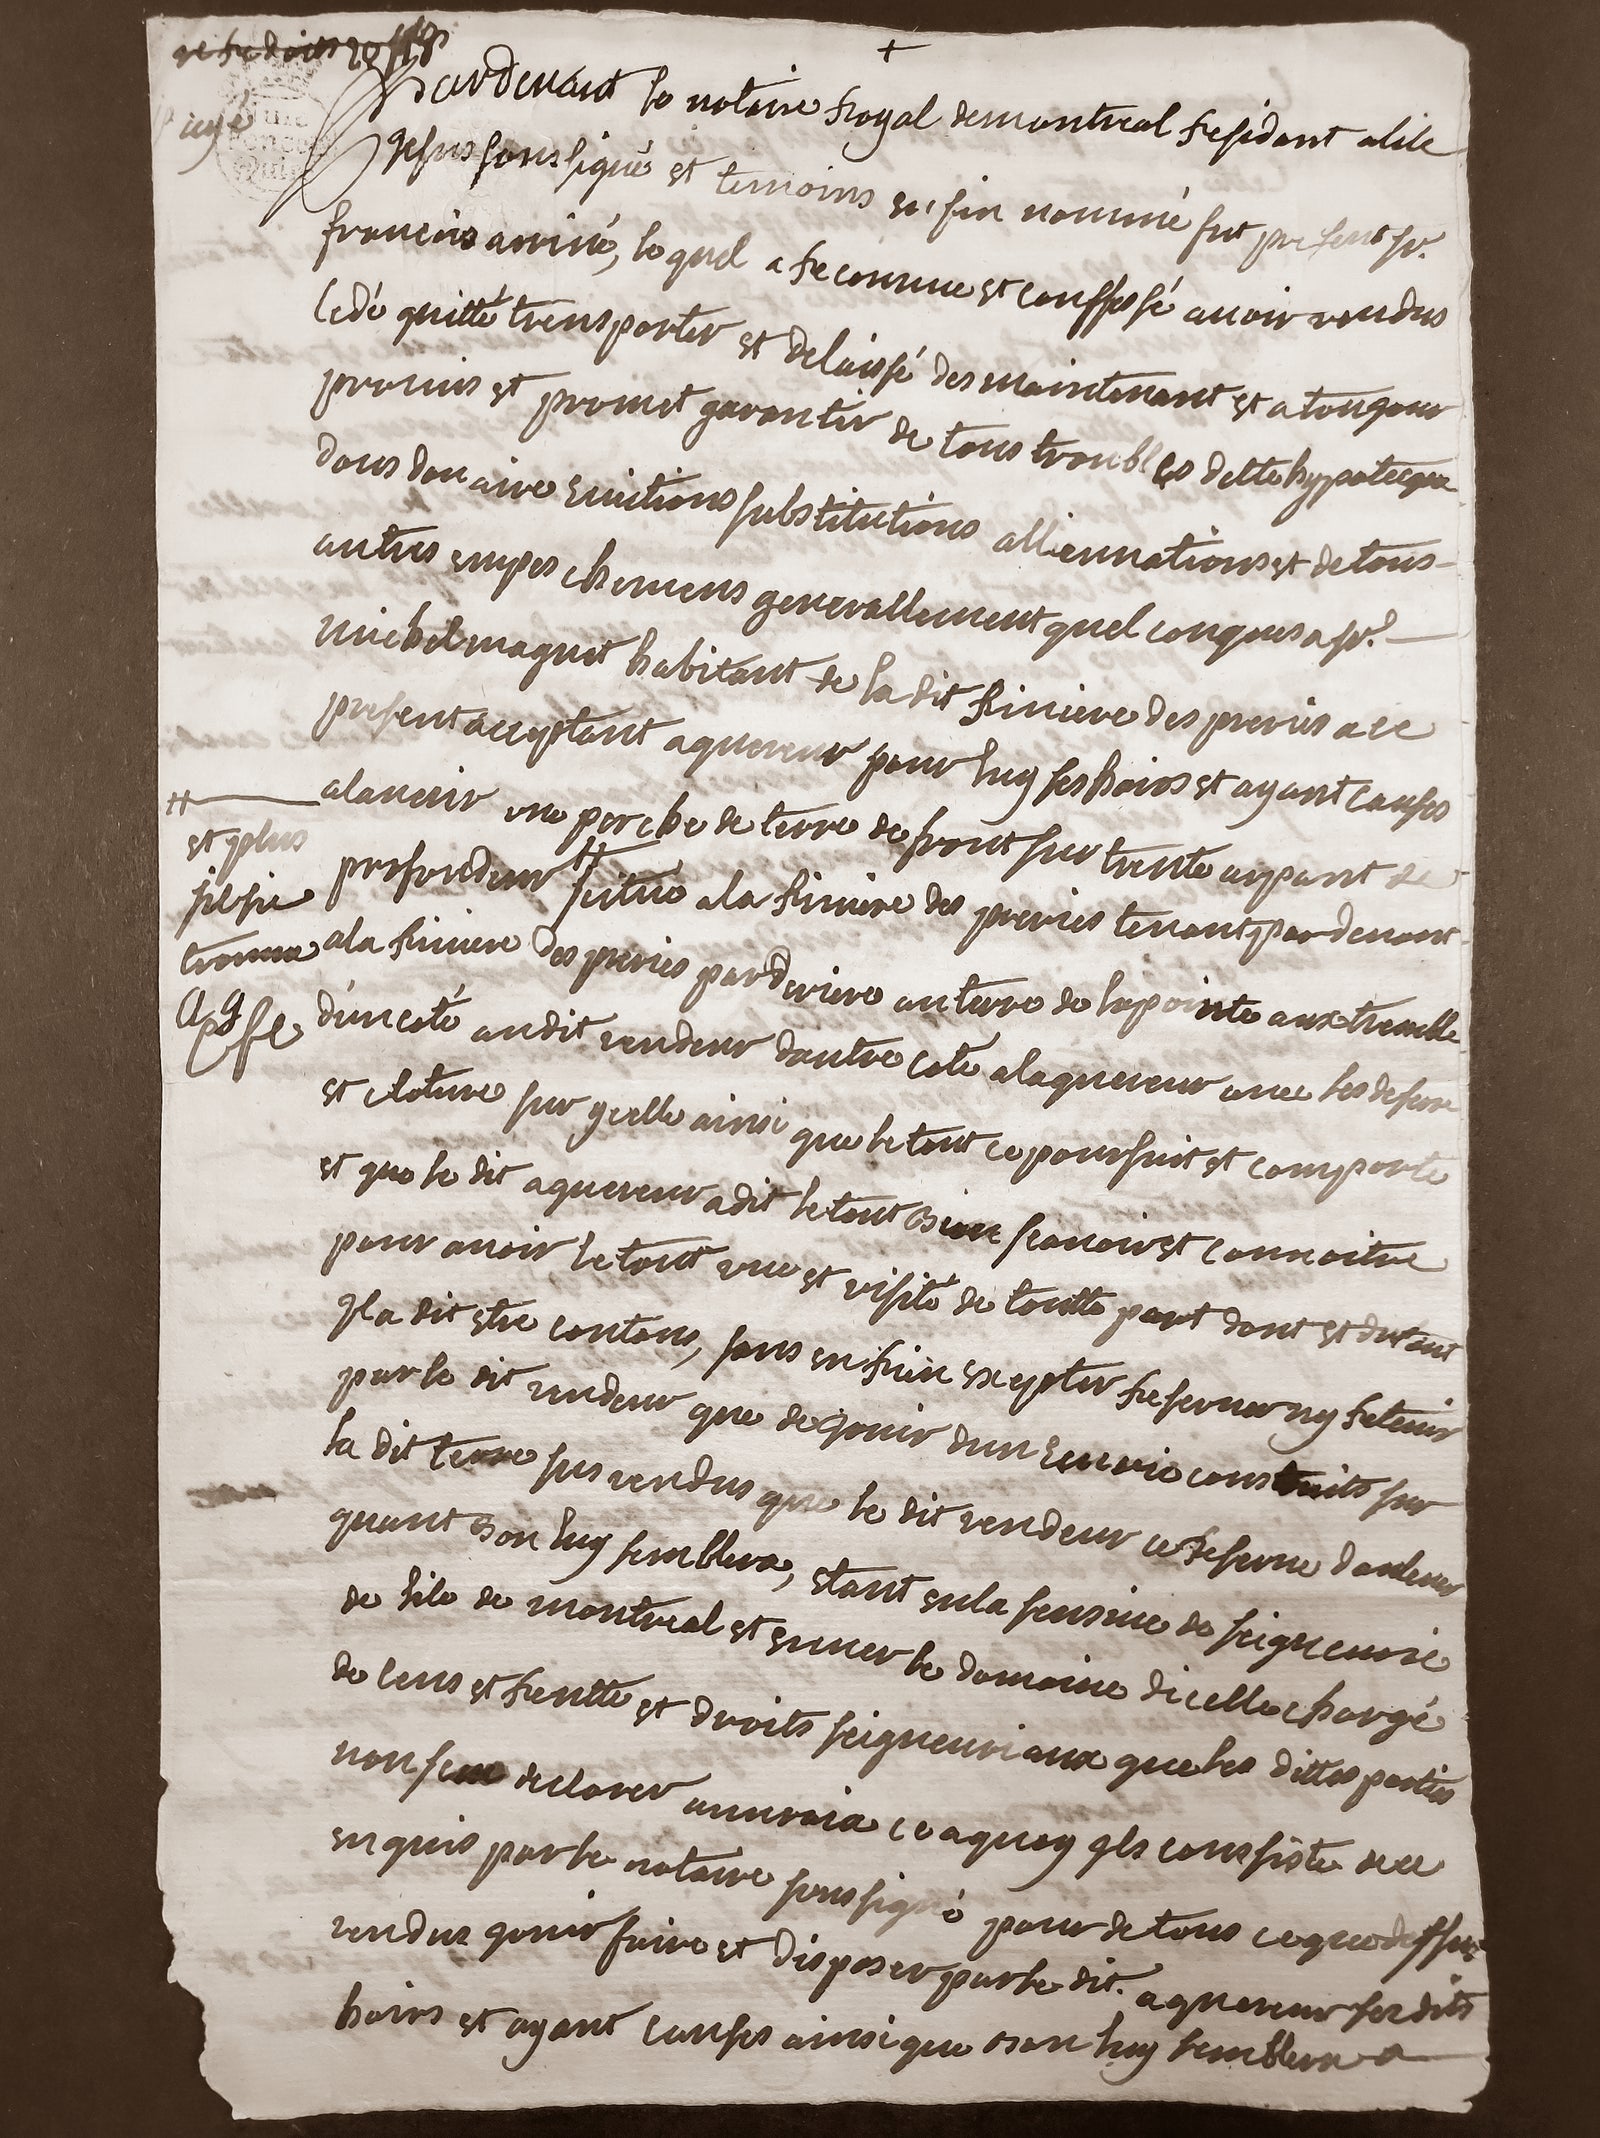 +
Pardevant le notaire Royal demontreal Residant alile
Jesus sousigné et temoins en fin nommé fut present sr.
francois arrivé, le quel a Reconnue et conffessé avoir vendus
Cedé quitté transporter et delaissé des maintenant et a tougour
promis et promet garantir de tous troubles dette hypotecque
dous douaire Evictions substitutions alliennations et de tous
autres empeschemens generallement quel conques a sr.
michel magnet habitant de la dit Riviere des preries a ce
present acceptant aquereur pour luy ses hoirs et ayant Causes
alavenir une perche de terre de front sur trente arpant de
profondeur # scitue a la Riviere des preries tenant par devant
# et plus
sil sie
trouve
a la Riviere Des preries par Deriere au terre de lapointe aux tremble
d'un coté au dit vendeur dautre coté alaquereur avec les deser
et cloture sur ycelle ainsi que le tout ce poursuit et comporte
et que le dit aquereur a dit le tout bien scavoir et connoitre
pour avoir le tout vue et visité de toutte part dont et du tout
yl a dit Etre contans, sans en Rien Excepter Reserver ny Retenir
par le dit vendeur que de jouir dun Ecurie construits sur
la dit terre sus vendus que le dit vendeur ce Reserve d'anlever
quant bon luy semblera, Etant en la sensive de seigneurie
de lile de montreal et enver le domaine dicelle chargé
de Cens et Rentte et droits seigneuriaux que les dittes parties
non seu declarer auvrai ce a quoy yls consiste de ce
enquis par le notaire sousigné pour de tous ce que dessus
vendus gouir faire et Disposer par le dit. aquereur ses dits
hoirs et ayant causes ainsi que bon luy semblera